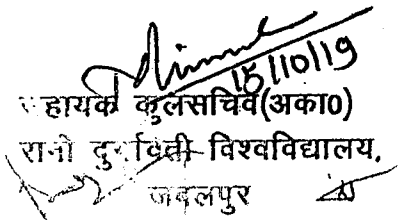 15/10/19
सहायक कुलसचिव(अका0)
रानी दुर्गावती विश्वविद्यालय,
जबलपुर